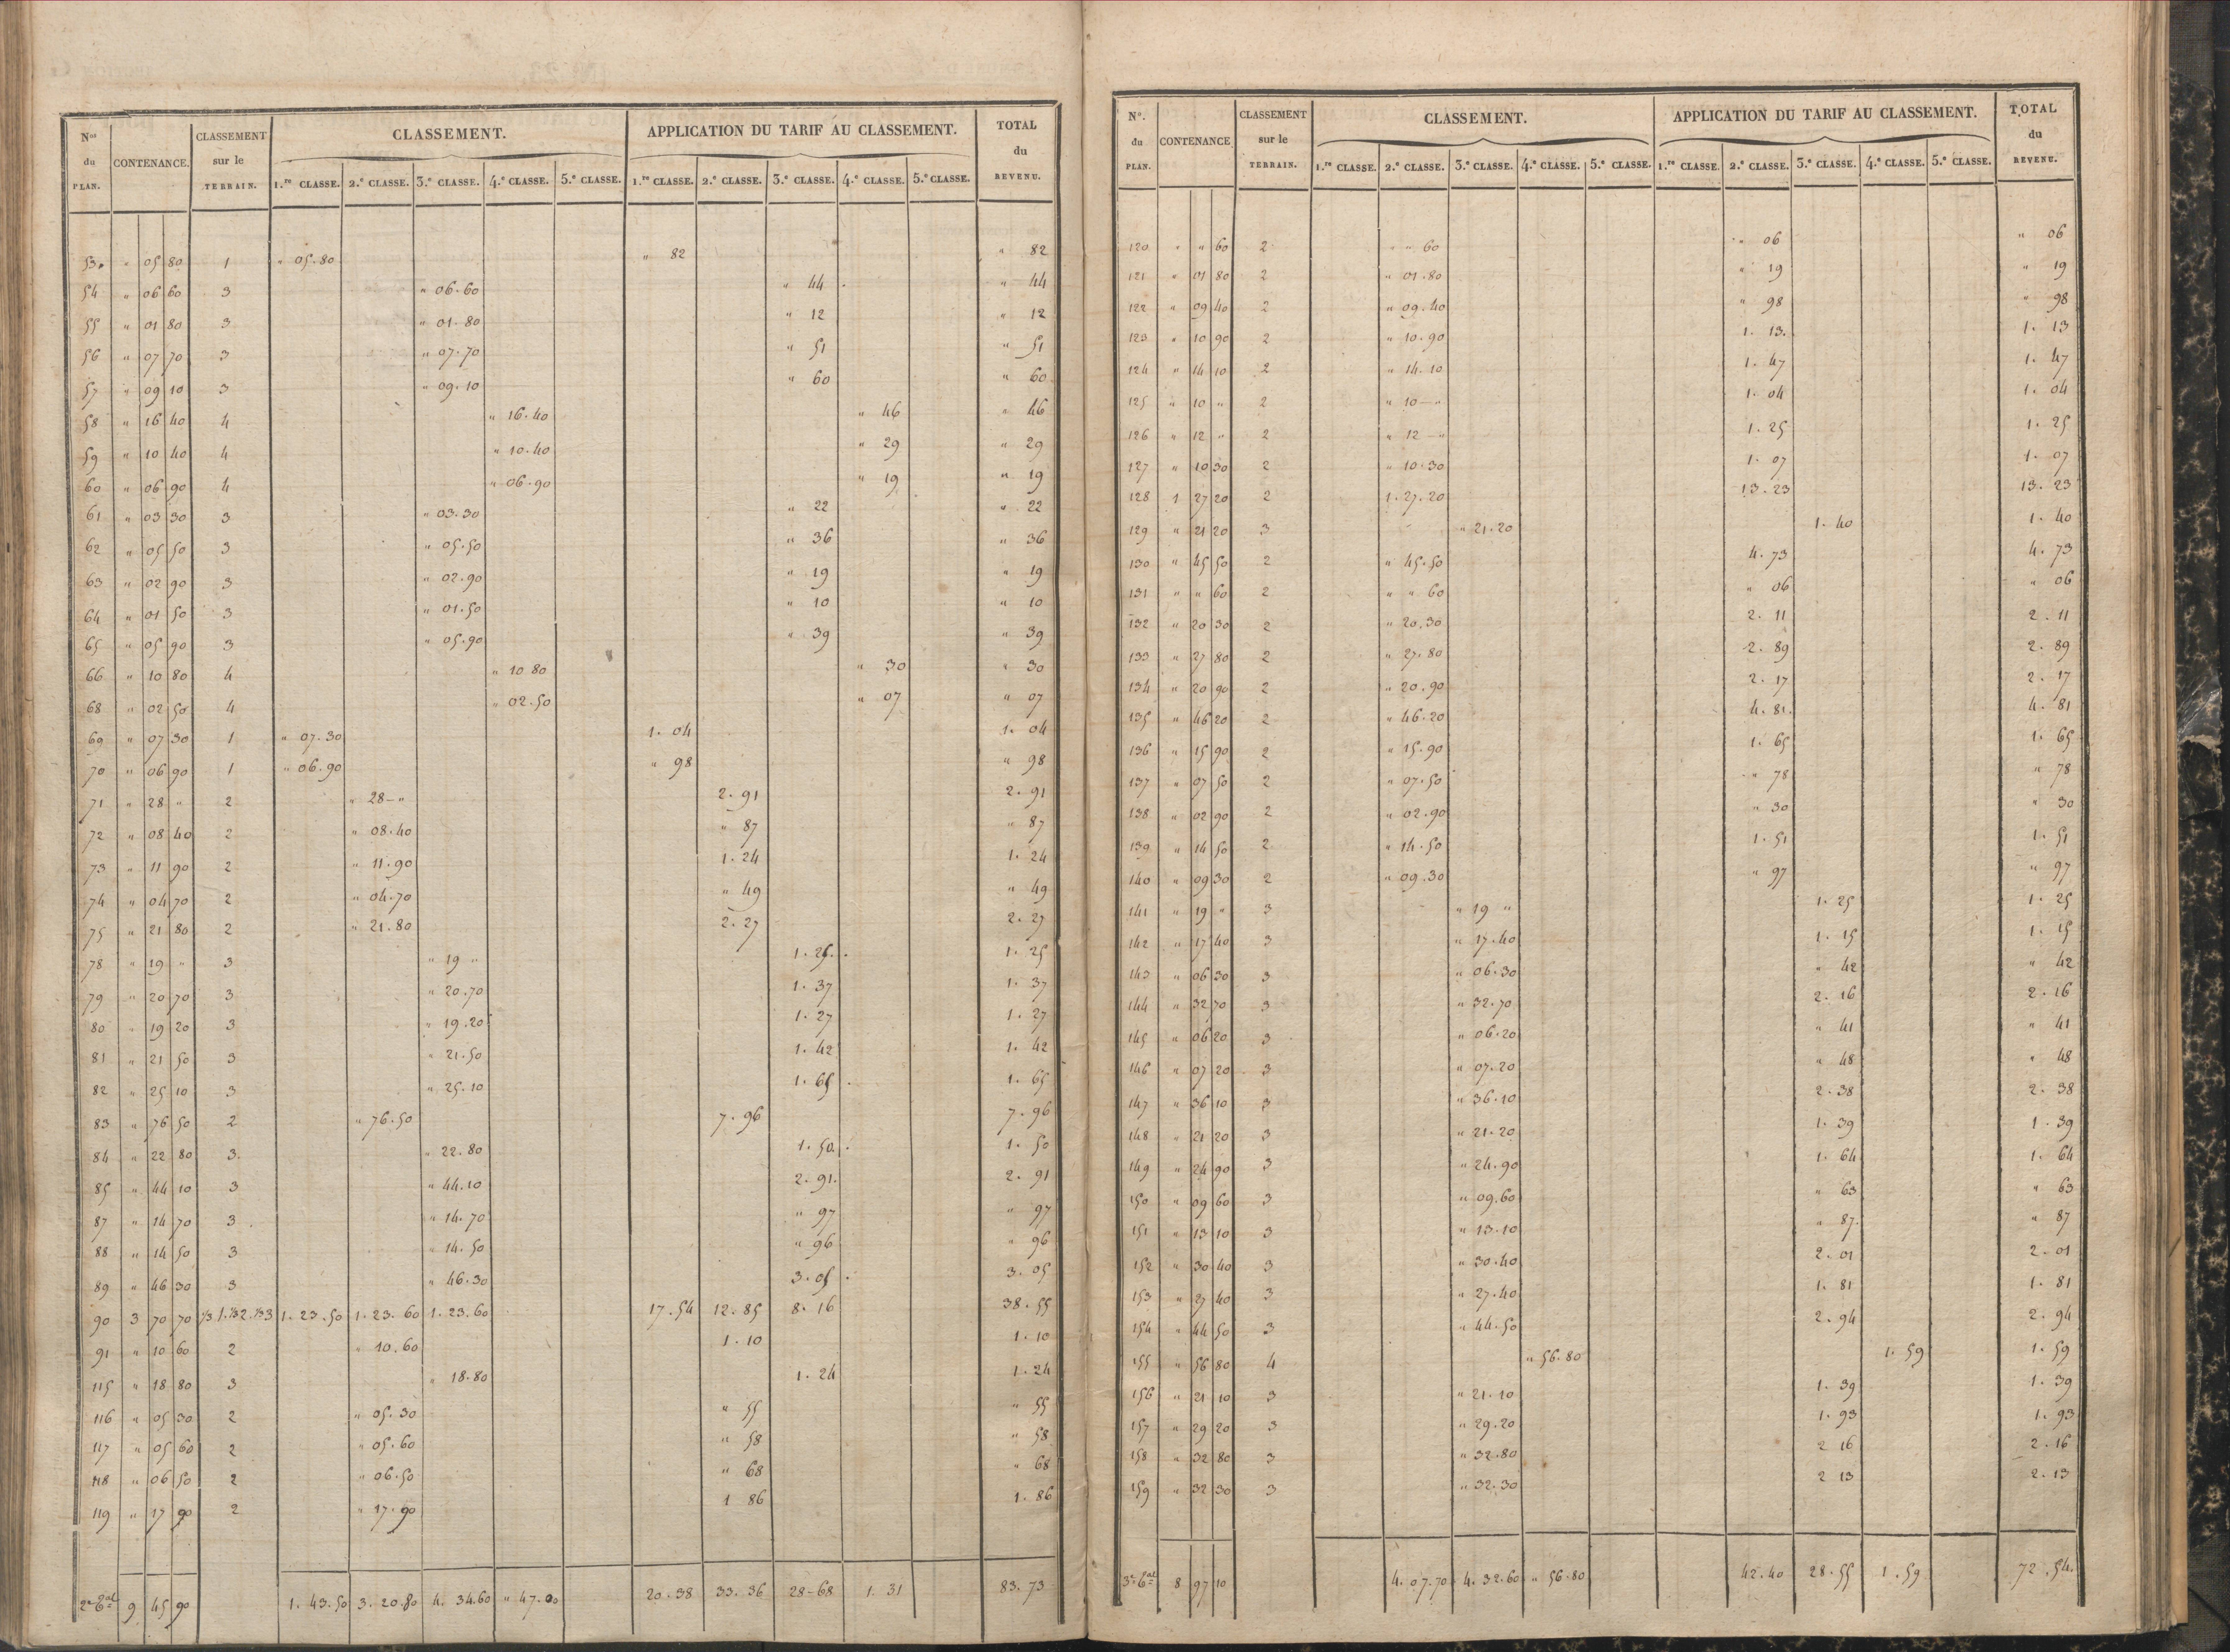 Nos du PLAN. CONTENANCE. CLASSEMENT sur le TERRAIN. CLASSEMENT. APPLICATION DU TARIF AU CLASSEMENT. TOTAL du REVENU.
1.re CLASSE. 2.e CLASSE. 3.e CLASSE. 4.e CLASSE. 5.e CLASSE. 1.re CLASSE. 2.e CLASSE. 3.e CLASSE. 4.e CLASSE. 5.e CLASSE.
53. " 05 80 1 " 05.80 " 82 " 82
54 " 06 60 3 " 06.60 " 44 " 44
55 " 01 80 3 " 01.80 " 12 " 12
56 " 07 70 3 " 07.70 " 51 " 51
57 " 09 10 3 " 09.10 " 60 " 60
58 " 16 40 4 " 16.40 " 46 " 46
59 " 10 40 4 " 10.40 " 29 " 29
60 " 06 90 4 " 06.90 " 19 " 19
61 " 03 30 3 " 03.30 " 22 " 22
62 " 05 50 3 " 05.50 " 36 " 36
63 " 02 90 3 " 02.90 " 19 " 19
64 " 01 50 3 " 01.50 " 10 " 10
65 " 05 90 3 " 05.90 " 39 " 39
66 " 10 80 4 " 10 80 " 30 " 30
68 " 02 50 4 " 02.50 " 07 " 07
69 " 07 30 1 " 07.30 1. 04 1. 04
70 " 06 90 1 " 06.90 " 98 " 98
71 " 28 " 2 " 28-" 2. 91 2. 91
72 " 08 40 2 " 08.40 " 87 " 87
73 " 11 90 2 " 11.90 1. 24 1. 24
74 " 04 70 2 " 04.70 " 49 " 49
75 " 21 80 2 " 21.80 2. 27 2. 27
78 " 19 " 3 " 19 " 1. 25. 1. 25
79 " 20 70 3 " 20.70 1. 37 1. 37
80 " 19 20 3 " 19.20 1. 27 1. 27
81 " 21 50 3 " 21.50 1. 42 1. 42
82 " 25 10 3 " 25.10 1. 65 1. 65
83 " 76 50 2 " 76.50 7. 96 7. 96
84 " 22 80 3. " 22.80 1. 50. 1. 50
85 " 44 10 3 " 44.10 2. 91. 2. 91
87 " 14 70 3 " 14.70 " 97 " 97
88 " 14 50 3 " 14.50 " 96 " 96
89 " 46 30 3 " 46.30 3. 05 3. 05
90 3 70 70 1/3 1. 1/3 2. 1/3 3 1. 23. 50 1. 23. 60 1. 23. 60 17. 54 12. 85 8. 16 38. 55
91 " 10 60 2 " 10.60 1. 10 1. 10
115 " 18 80 3 " 18.80 1. 24 1. 24
116 " 05 30 2 " 05.30 " 55 " 55
117 " 05 60 2 " 05.60 " 58 " 58
118 " 06 50 2 " 06.50 " 68 " 68
119 " 17 90 2 " 17.90 1 86 1. 86
2e Gal 9 45 90 1. 43. 50 3. 20. 80 4. 34.60 " 47.00 20. 38 33. 36 28-68 1. 31 83. 73
No. du PLAN. CONTENANCE CLASSEMENT sur le TERRAIN. CLASSEMENT. APPLICATION DU TARIF AU CLASSEMENT. TOTAL du REVENU.
1.re CLASSE. 2.e CLASSE. 3.e CLASSE. 4.e CLASSE. 5.e CLASSE. 1.re CLASSE. 2.e CLASSE. 3.e CLASSE. 4.e CLASSE. 5.e CLASSE.
120 " " 60 2 " " 60 " 06 " 06
121 " 01 80 2 " 01.80 " 19 " 19
122 " 09 40 2 " 09.40 " 98 " 98
123 " 10 90 2 " 10.90 1. 13. 1. 13
124 " 14 10 2 " 14.10 1. 47 1. 47
125 " 10 " 2 " 10-" 1. 04 1. 04
126 " 12 " 2 " 12-" 1. 25 1. 25
127 " 10 30 2 " 10.30 1. 07 1. 07
128 1 27 20 2 1. 27. 20 13. 23 13. 23
129 " 21 20 3 " 21.20 1. 40 1. 40
130 " 45 50 2 " 45.50 4. 73 4. 73
131 " " 60 2 " " 60 " 06 " 06
132 " 20 30 2 " 20.30 2. 11 2. 11
133 " 27 80 2 " 27.80 2. 89 2. 89
134 " 20 90 2 " 20.90 2. 17 2. 17
135 " 46 20 2 " 46.20 4. 81. 4. 81
136 " 15 90 2 " 15.90 1. 65 1. 65
137 " 07 50 2 " 07.50 " 78 " 78
138 " 02 90 2 " 02.90 " 30 " 30
139 " 14 50 2 " 14.50 1. 51 1. 51
140 " 09 30 2 " 09.30 " 97 " 97
141 " 19 " 3 " 19 " 1. 25 1. 25
142 " 17 40 3 " 17.40 1. 15 1. 15
143 " 06 30 3 " 06.30 " 42 " 42
144 " 32 70 3 " 32.70 2. 16 2. 16
145 " 06 20 3 " 06.20 " 41 " 41
146 " 07 20 3 " 07.20 " 48 " 48
147 " 36 10 3 " 36.10 2. 38 2. 38
148 " 21 20 3 " 21.20 1. 39 1. 39
149 " 24 90 3 " 24.90 1. 64 1. 64
150 " 09 60 3 " 09.60 " 63 " 63
151 " 13 10 3 " 13.10 " 87. " 87
152 " 30 40 3 " 30.40 2. 01 2. 01
153 " 27 40 3 " 27.40 1. 81 1. 81
154 " 44 50 3 " 44.50 2. 94 2. 94
155 " 56 80 4 " 56.80 1. 59 1. 59
156 " 21 10 3 " 21.10 1. 39 1. 39
157 " 29 20 3 " 29.20 1. 93 1. 93
158 " 32 80 3 " 32.80 2 16 2. 16
159 " 32 30 3 " 32.30 2 13 2. 13
3e Gal 8 97 10 4. 07. 70 4. 32. 60 " 56.80 42. 40 28. 55 1. 59 72. 54.